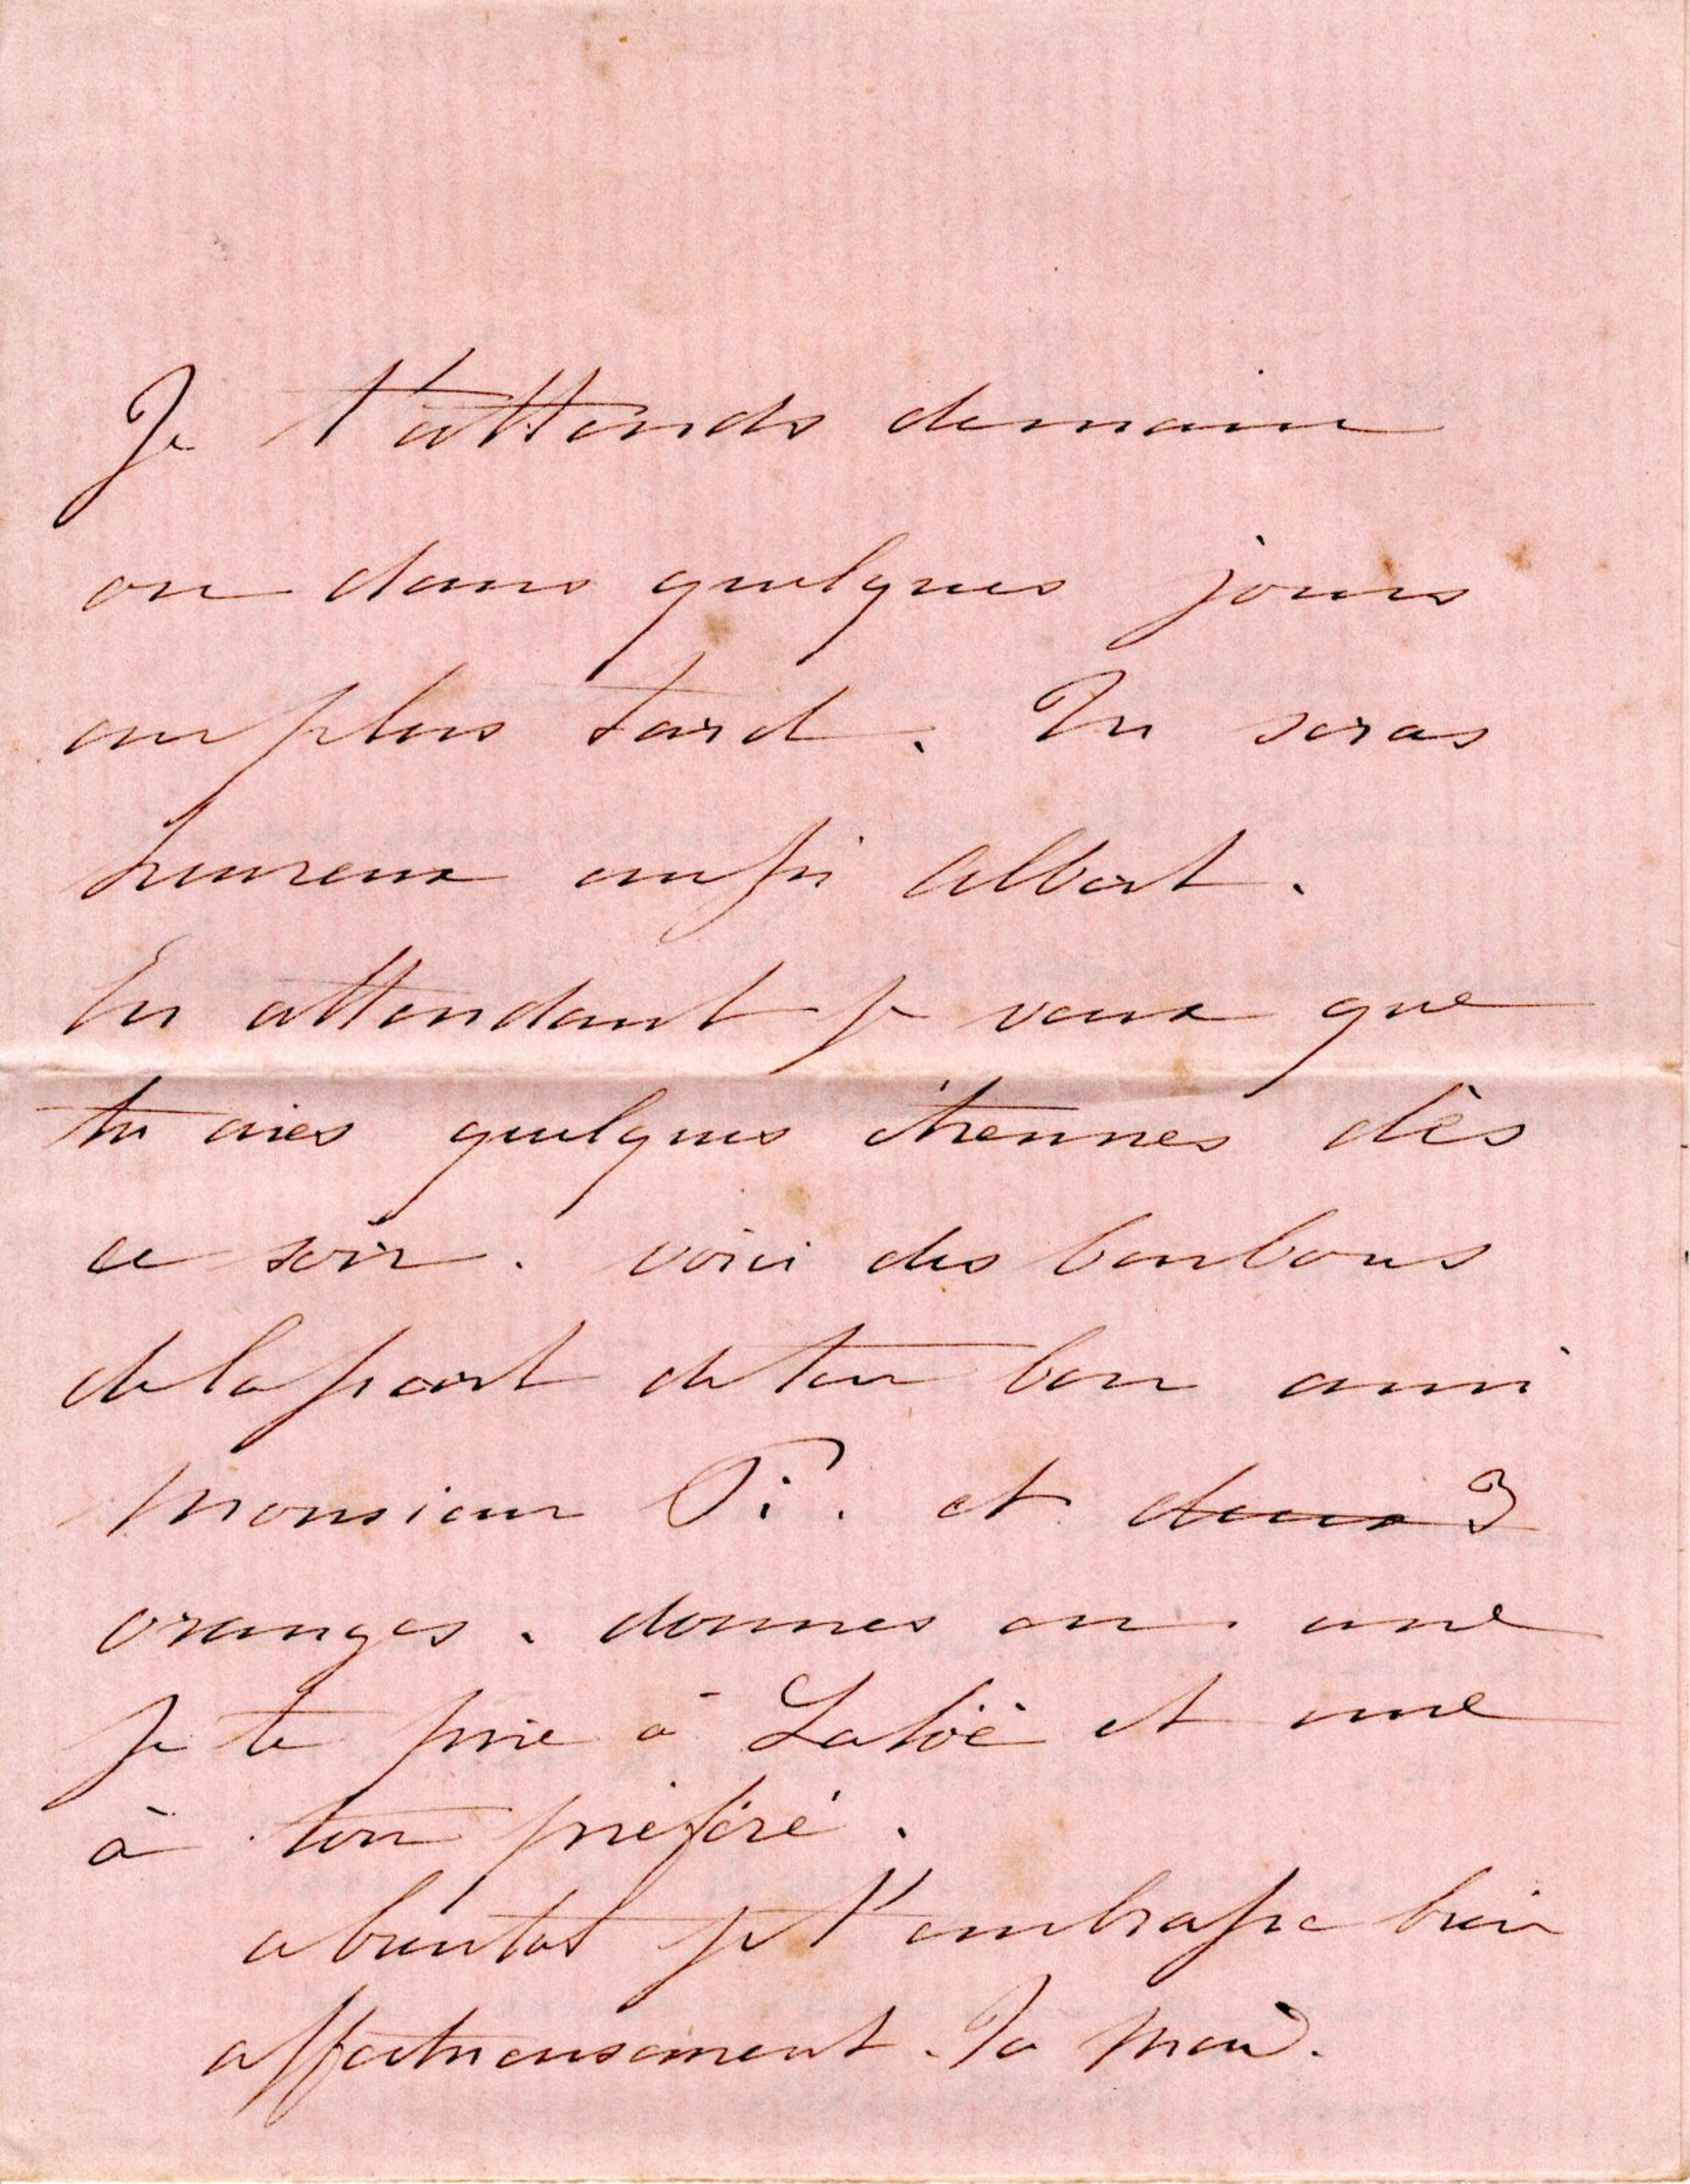 Je t'attends demain
ou dans quelques jours
au plus tard. Tu seras
heureux aussi Albert.
En attendant je veux que
tu aies quelques étrennes dès
ce soir. voici des bonbons
de la part de ton bon ami
Monsieur et deux 3
oranges. donnes en une
Je te prie à et une
à ton préféré.
a bientot je t'embrasse bien
affectueusement. Ta